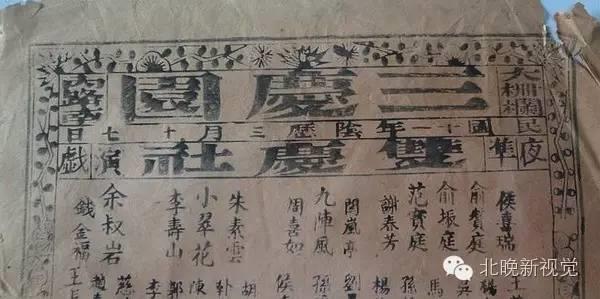 大柵欄
三慶園
民國十一年陰歷三月十七日
夜隼
雙慶社
演戲
侯喜瑞
俞贊庭 楊
俞振庭 吳
范寶庭 馬
謝春芳 孫
閻嵐亭 劉
九陣風 孫
周喜如 侯
朱素雲 胡
小翠花
李壽山
余叔岩 慈
錢金福
北晚新视觉